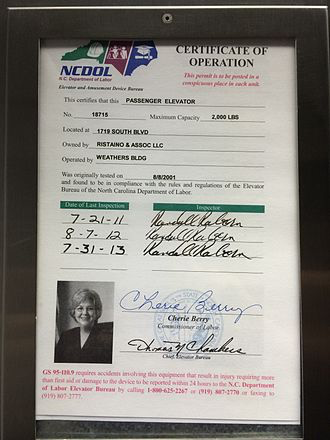 CERTIFICATE OF
OPERATION
NCDOL
N.C. Department of Labor
This permit is to be posted in a
conspicuous place in each unit.
Elevator and Amusement Device Bureau
This certifies that this PASSENGER ELEVATOR
No. 18715 Maximum Capacity 2,000 LBS
Located at 1719 SOUTH BLVD
Owned by RISTAINO & ASSOC LLC
Operated by WEATHERS BLDG
Was originally tested on 8/8/2001
and found to be in compliance with the rules and regulations of the Elevator
Bureau of the North Carolina Department of Labor.
Date of Last Inspection Inspector
7-21-11
8-7-12
7-31-13
Cherie Berry
Cherie Berry
Commissioner of Labor
Chief, Elevator Bureau
GS 95-110.9 requires accidents involving this equipment that result in injury requiring
more than first aid or damage to the device to be reported within 24 hours to the N.C. Department
of Labor Elevator Bureau by calling 1-800-625-2267 or (919) 807-2770 or faxing to
(919) 807-2777.